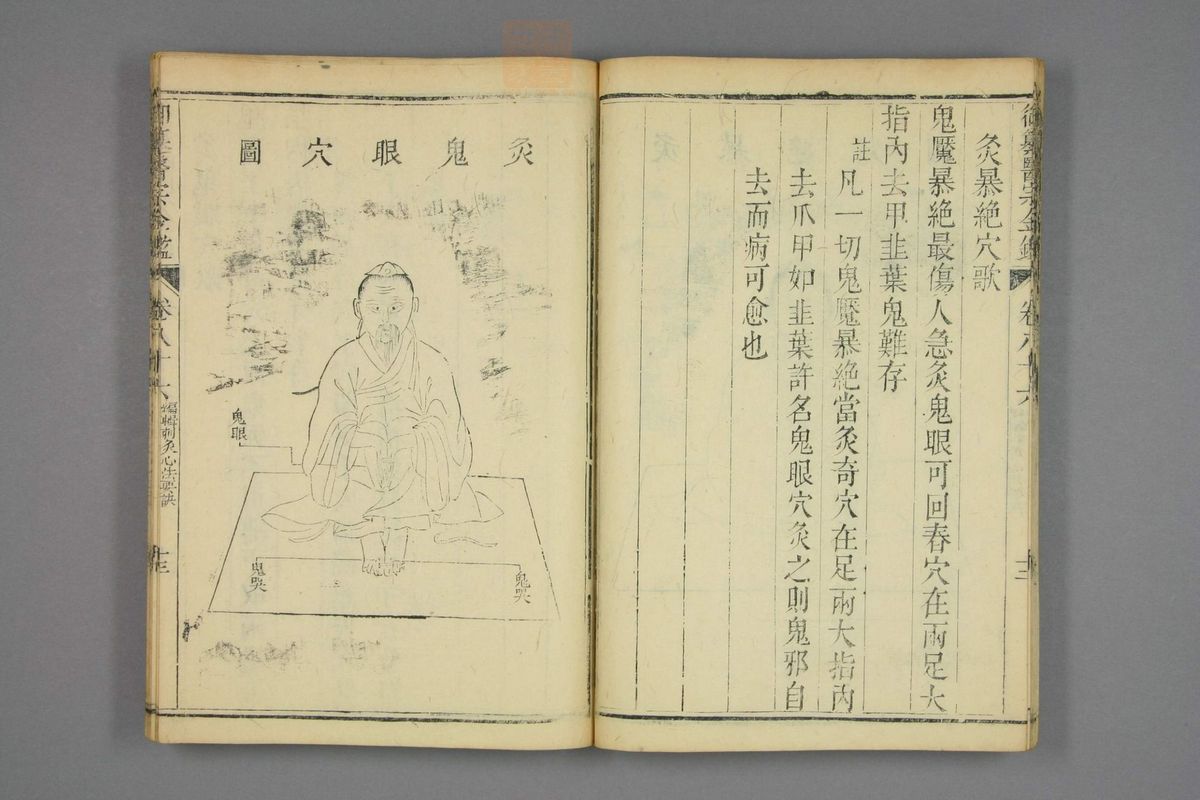 御纂醫宗金鑑
卷八十六
十二
灸暴絶穴歌
鬼魘暴絶最傷人急灸鬼眼可回春穴在兩足大
指內去甲韭葉鬼難存
註
凡一切鬼魘暴絶當灸奇穴在足兩大指內
去爪甲如韭葉許名鬼眼穴灸之則鬼邪自
去而病可愈也
灸鬼眼穴圖
鬼眼
鬼哭
鬼哭
御纂醫宗金鑑
卷八十六
編輯刺灸心法要訣
十三